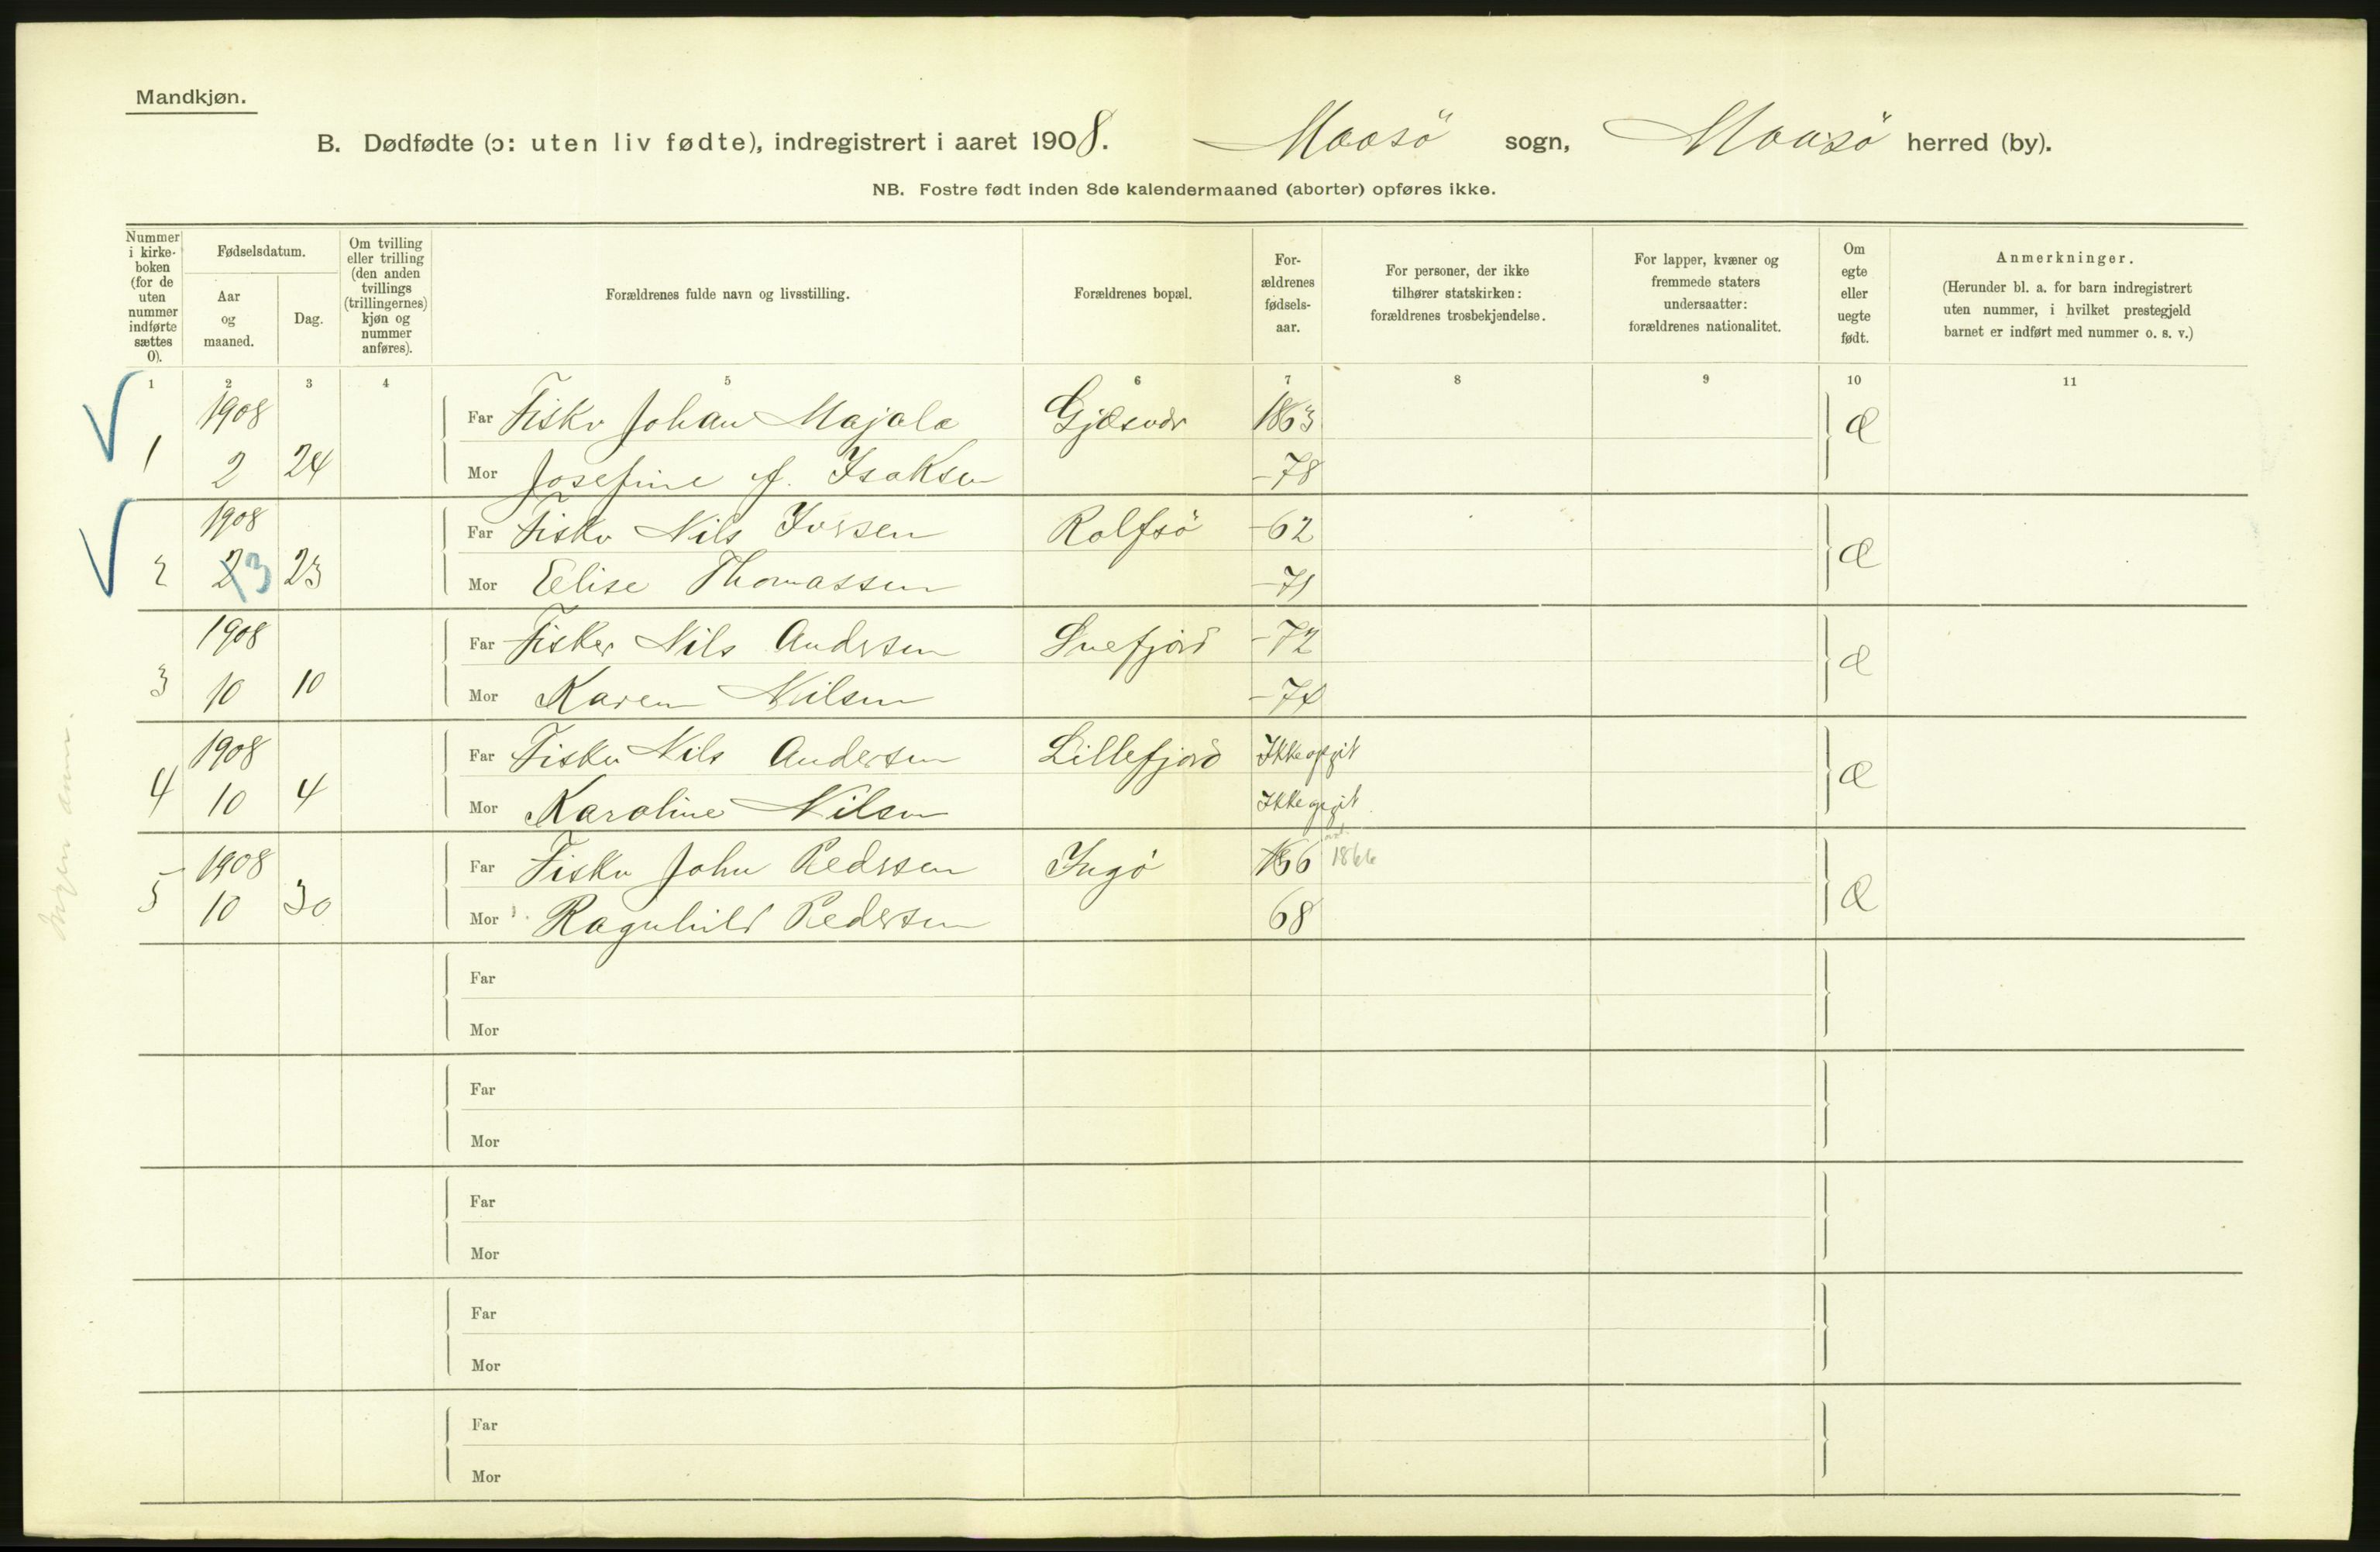 Mandkjøn.
B. Dødfødte (ɔ: uten liv fødte), indregistrert i aaret 1908. Maasö sogn, Maasö herred (by).
NB. Fostre født inden 8de kalendermaaned (aborter) opføres ikke.
Nummer i kirke-boken (for de uten nummer indførte sættes 0).
Fødselsdatum.
Aar og maaned.
Dag.
Om tvilling eller trilling (den anden tvillings (trillingernes) kjøn og nummer anføres).
Forældrenes fulde navn og livsstilling.
Forældrenes bopæl.
For-ældrenes fødsels-aar.
For personer, der ikke tilhører statskirken: forældrenes trosbekjendelse.
For lapper, kvæner og fremmede staters undersaatter: forældrenes nationalitet.
Om egte eller uegte født.
Anmerkninger.
(Herunder bl. a. for barn indregistrert uten nummer, i hvilket prestegjeld barnet er indført med nummer o. s. v.)
1 2 3 4 5 6 7 8 9 10 11
1908 Far Fisker Johan Majala Gjæsvær 1863 Æ
1 2 24 Mor Josefine J. Isaksen -78
1908 Far Fisker Nils Iversen Rolfsö -62 Æ
2 2 3 23 Mor Elise Thomassen -71
1908 Far Fisker Nils Andersen Snefjord -72 Æ
3 10 10 Mor Karen Nilsen -74
1908 Far Fisker Nils Andersen Lillefjord Ikke opgit Æ
4 10 4 Mor Karoline Nilsen Ikke opgit.
1908 Far Fisker John Pedersen Ingö 66 1866 Æ
5 10 30 Mor Ragnhild Pedersen 68
Far
Mor
Far
Mor
Far
Mor
Far
Mor
Far
Mor
Ingen anm.